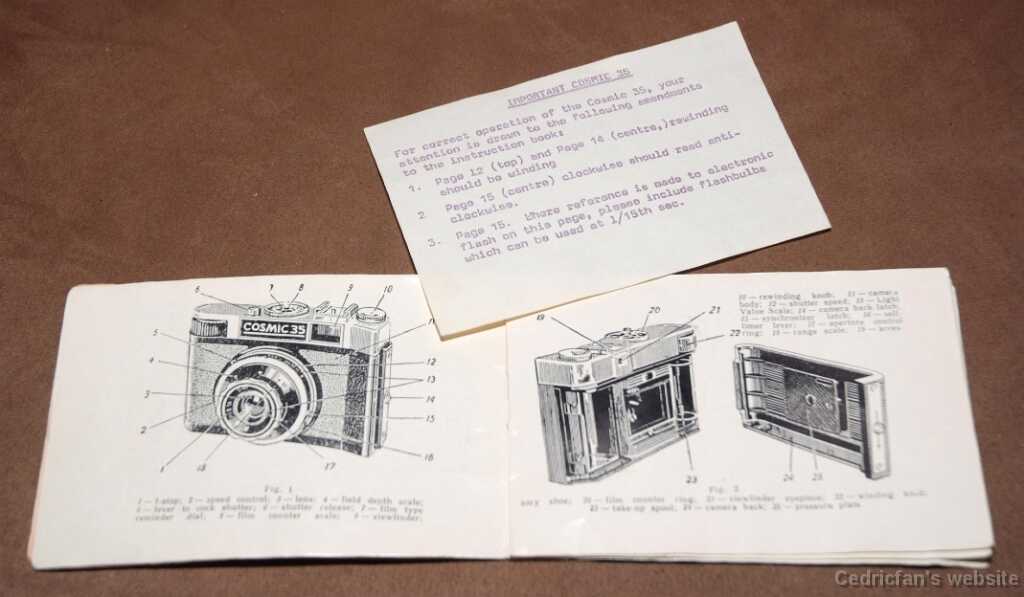 IMPORTANT COSMIC 35
For correct operation of the Cosmic 35, your
attention is drawn to the following amendments
to the instruction book:
1. Page 12 (top) and Page 14 (centre,)rewinding
should be winding
2 Page 15 (centre) clockwise should read anti-
clockwise.
3. Page 15. Where reference is made to electronic
flash on this page, please include flashbulbs
which can be used at 1/15th sec.
6 7 8 9 10
11
COSMIC 35
5
4
3
2
1
12
13
14
15
16
17
18
Fig. 1
1 — f-stop; 2 — speed control; 3 — lens; 4 — field depth scale;
5 — lever to cock shutter; 6 — shutter release; 7 — film type
reminder dial; 8 — film counter scale; 9 — viewfinder;
10 — rewinding knob; 11 — camera
body; 12 — shutter speed; 13 — Light
Value Scale; 14 — camera back latch;
15 — synchronizer latch; 16 — self-
timer lever; 17 — aperture control
ring; 18 — range scale; 19 — acces-
19 20 21 22
23 24 25
Fig. 2
sory shoe; 20 — film counter ring; 21 — viewfinder eyepiece; 22 — winding knob;
23 — take-up spool; 24 — camera back; 25 — pressure plate
Cedricfan's website